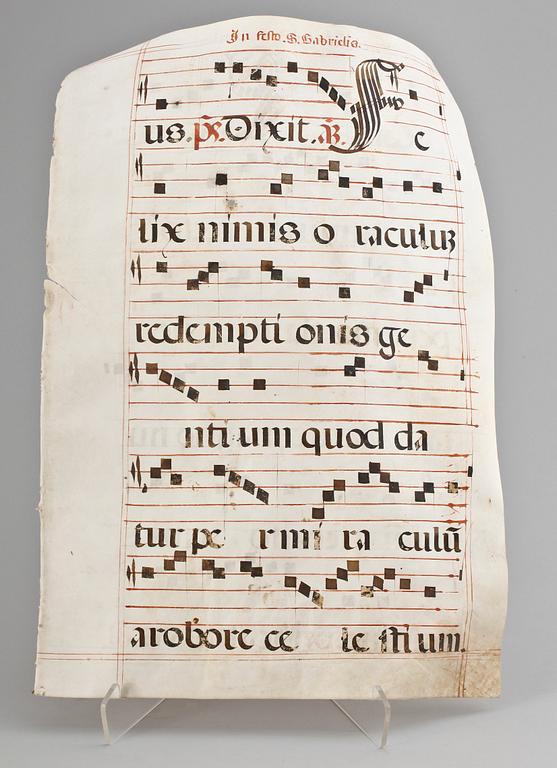 In festo. S. Gabrielis.
us. ps. Dixit. añ. F e
lix nimis o raculuz
redempti onis ge
nti um quod da
tur pe r mi ra culũ
a robore ce le sti um.